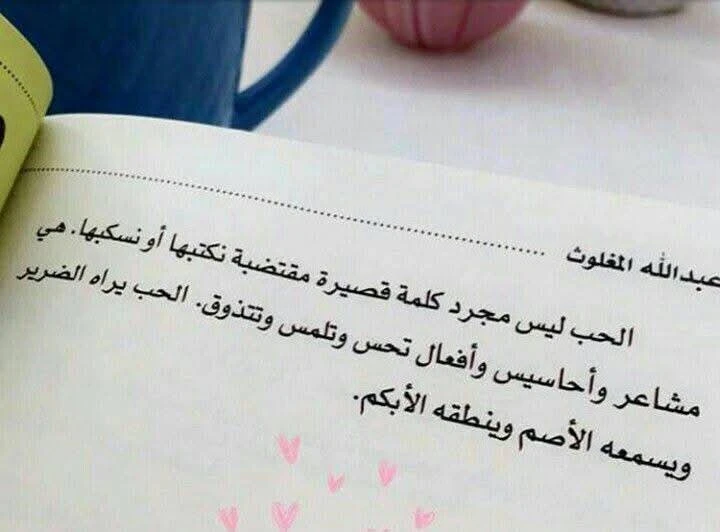 عبدالله المغلوث
الحب ليس مجرد كلمة قصيرة مقتضبة نكتبها أو نسكبها. هي
مشاعر وأحاسيس وأفعال تحس وتلمس وتتذوق. الحب يراه الضرير
ويسمعه الأصم وينطقه الأبكم.